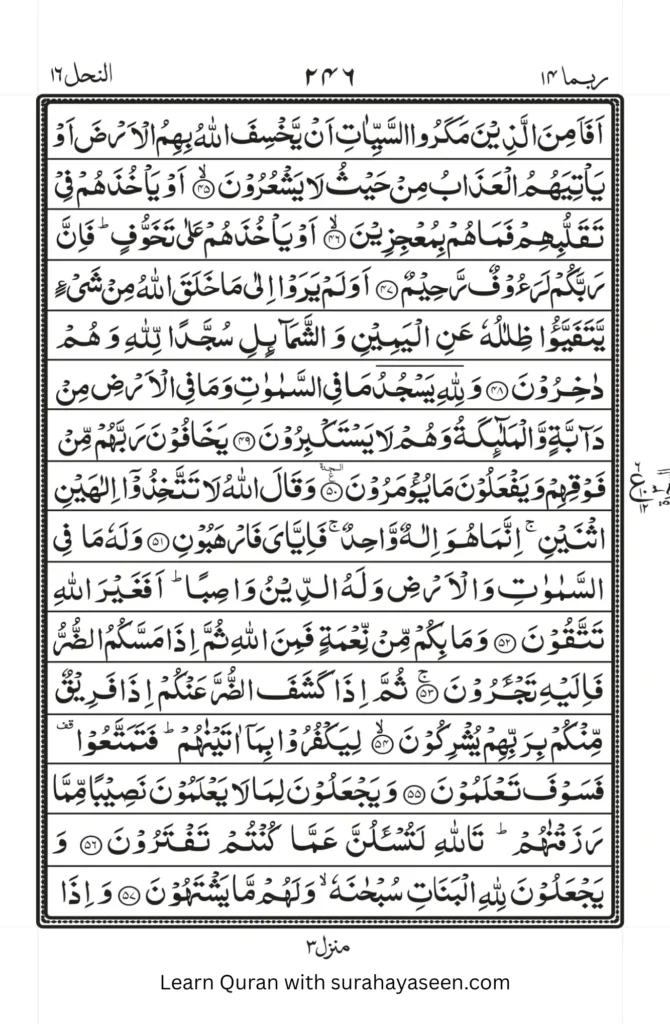 ربما ١٤
٢٤٦
النحل ١٦
اَفَاَمِنَ الَّذِيْنَ مَكَرُوا السَّيِّاٰتِ اَنْ يَّخْسِفَ اللّٰهُ بِهِمُ الْاَرْضَ اَوْ
يَاْتِيَهُمُ الْعَذَابُ مِنْ حَيْثُ لَا يَشْعُرُوْنَ ۙ‏﴿۴۵﴾ اَوْ يَاْخُذَهُمْ فِيْ
تَقَلُّبِهِمْ فَمَا هُمْ بِمُعْجِزِيْنَ ۙ‏﴿۴۶﴾ اَوْ يَاْخُذَهُمْ عَلٰى تَخَوُّفٍ ؕ فَاِنَّ
رَبَّكُمْ لَرَءُوْفٌ رَّحِيْمٌ ﴿۴۷﴾ اَوَلَمْ يَرَوْا اِلٰى مَا خَلَقَ اللّٰهُ مِنْ شَىْءٍ
يَّتَفَيَّؤُا ظِلٰلُهٗ عَنِ الْيَمِيْنِ وَ الشَّمَآئِلِ سُجَّدًا لِّلّٰهِ وَ هُمْ
دٰخِرُوْنَ ﴿۴۸﴾ وَ لِلّٰهِ يَسْجُدُ مَا فِي السَّمٰوٰتِ وَمَا فِي الْاَرْضِ مِنْ
دَآبَّةٍ وَّ الْمَلٰٓئِكَةُ وَهُمْ لَا يَسْتَكْبِرُوْنَ ﴿۴۹﴾ يَخَافُوْنَ رَبَّهُمْ مِّنْ
فَوْقِهِمْ وَيَفْعَلُوْنَ مَا يُؤْمَرُوْنَ ﴿۵۰﴾ وَقَالَ اللّٰهُ لَا تَتَّخِذُوْٓا اِلٰهَيْنِ
اثْنَيْنِ ۚ اِنَّمَا هُوَ اِلٰهٌ وَّاحِدٌ ۚ فَاِيَّايَ فَارْهَبُوْنِ ﴿۵۱﴾ وَلَهٗ مَا فِي
السَّمٰوٰتِ وَ الْاَرْضِ وَلَهُ الدِّيْنُ وَاصِبًا ؕ اَفَغَيْرَ اللّٰهِ
تَتَّقُوْنَ ﴿۵۲﴾ وَمَا بِكُمْ مِّنْ نِّعْمَةٍ فَمِنَ اللّٰهِ ثُمَّ اِذَا مَسَّكُمُ الضُّرُّ
فَاِلَيْهِ تَجْـَٔرُوْنَ ۚ‏﴿۵۳﴾ ثُمَّ اِذَا كَشَفَ الضُّرَّ عَنْكُمْ اِذَا فَرِيْقٌ
مِّنْكُمْ بِرَبِّهِمْ يُشْرِكُوْنَ ۙ‏﴿۵۴﴾ لِيَكْفُرُوْا بِمَآ اٰتَيْنٰهُمْ ؕ فَتَمَتَّعُوْا قف
فَسَوْفَ تَعْلَمُوْنَ ﴿۵۵﴾ وَيَجْعَلُوْنَ لِمَا لَا يَعْلَمُوْنَ نَصِيْبًا مِّمَّا
رَزَقْنٰهُمْ ؕ تَاللّٰهِ لَتُسْـَٔلُنَّ عَمَّا كُنْتُمْ تَفْتَرُوْنَ ﴿۵۶﴾ وَ
يَجْعَلُوْنَ لِلّٰهِ الْبَنَاتِ سُبْحٰنَهٗ ۙ وَلَهُمْ مَّا يَشْتَهُوْنَ ﴿۵۷﴾ وَ اِذَا
منزل ٣
Learn Quran with surahayaseen.com